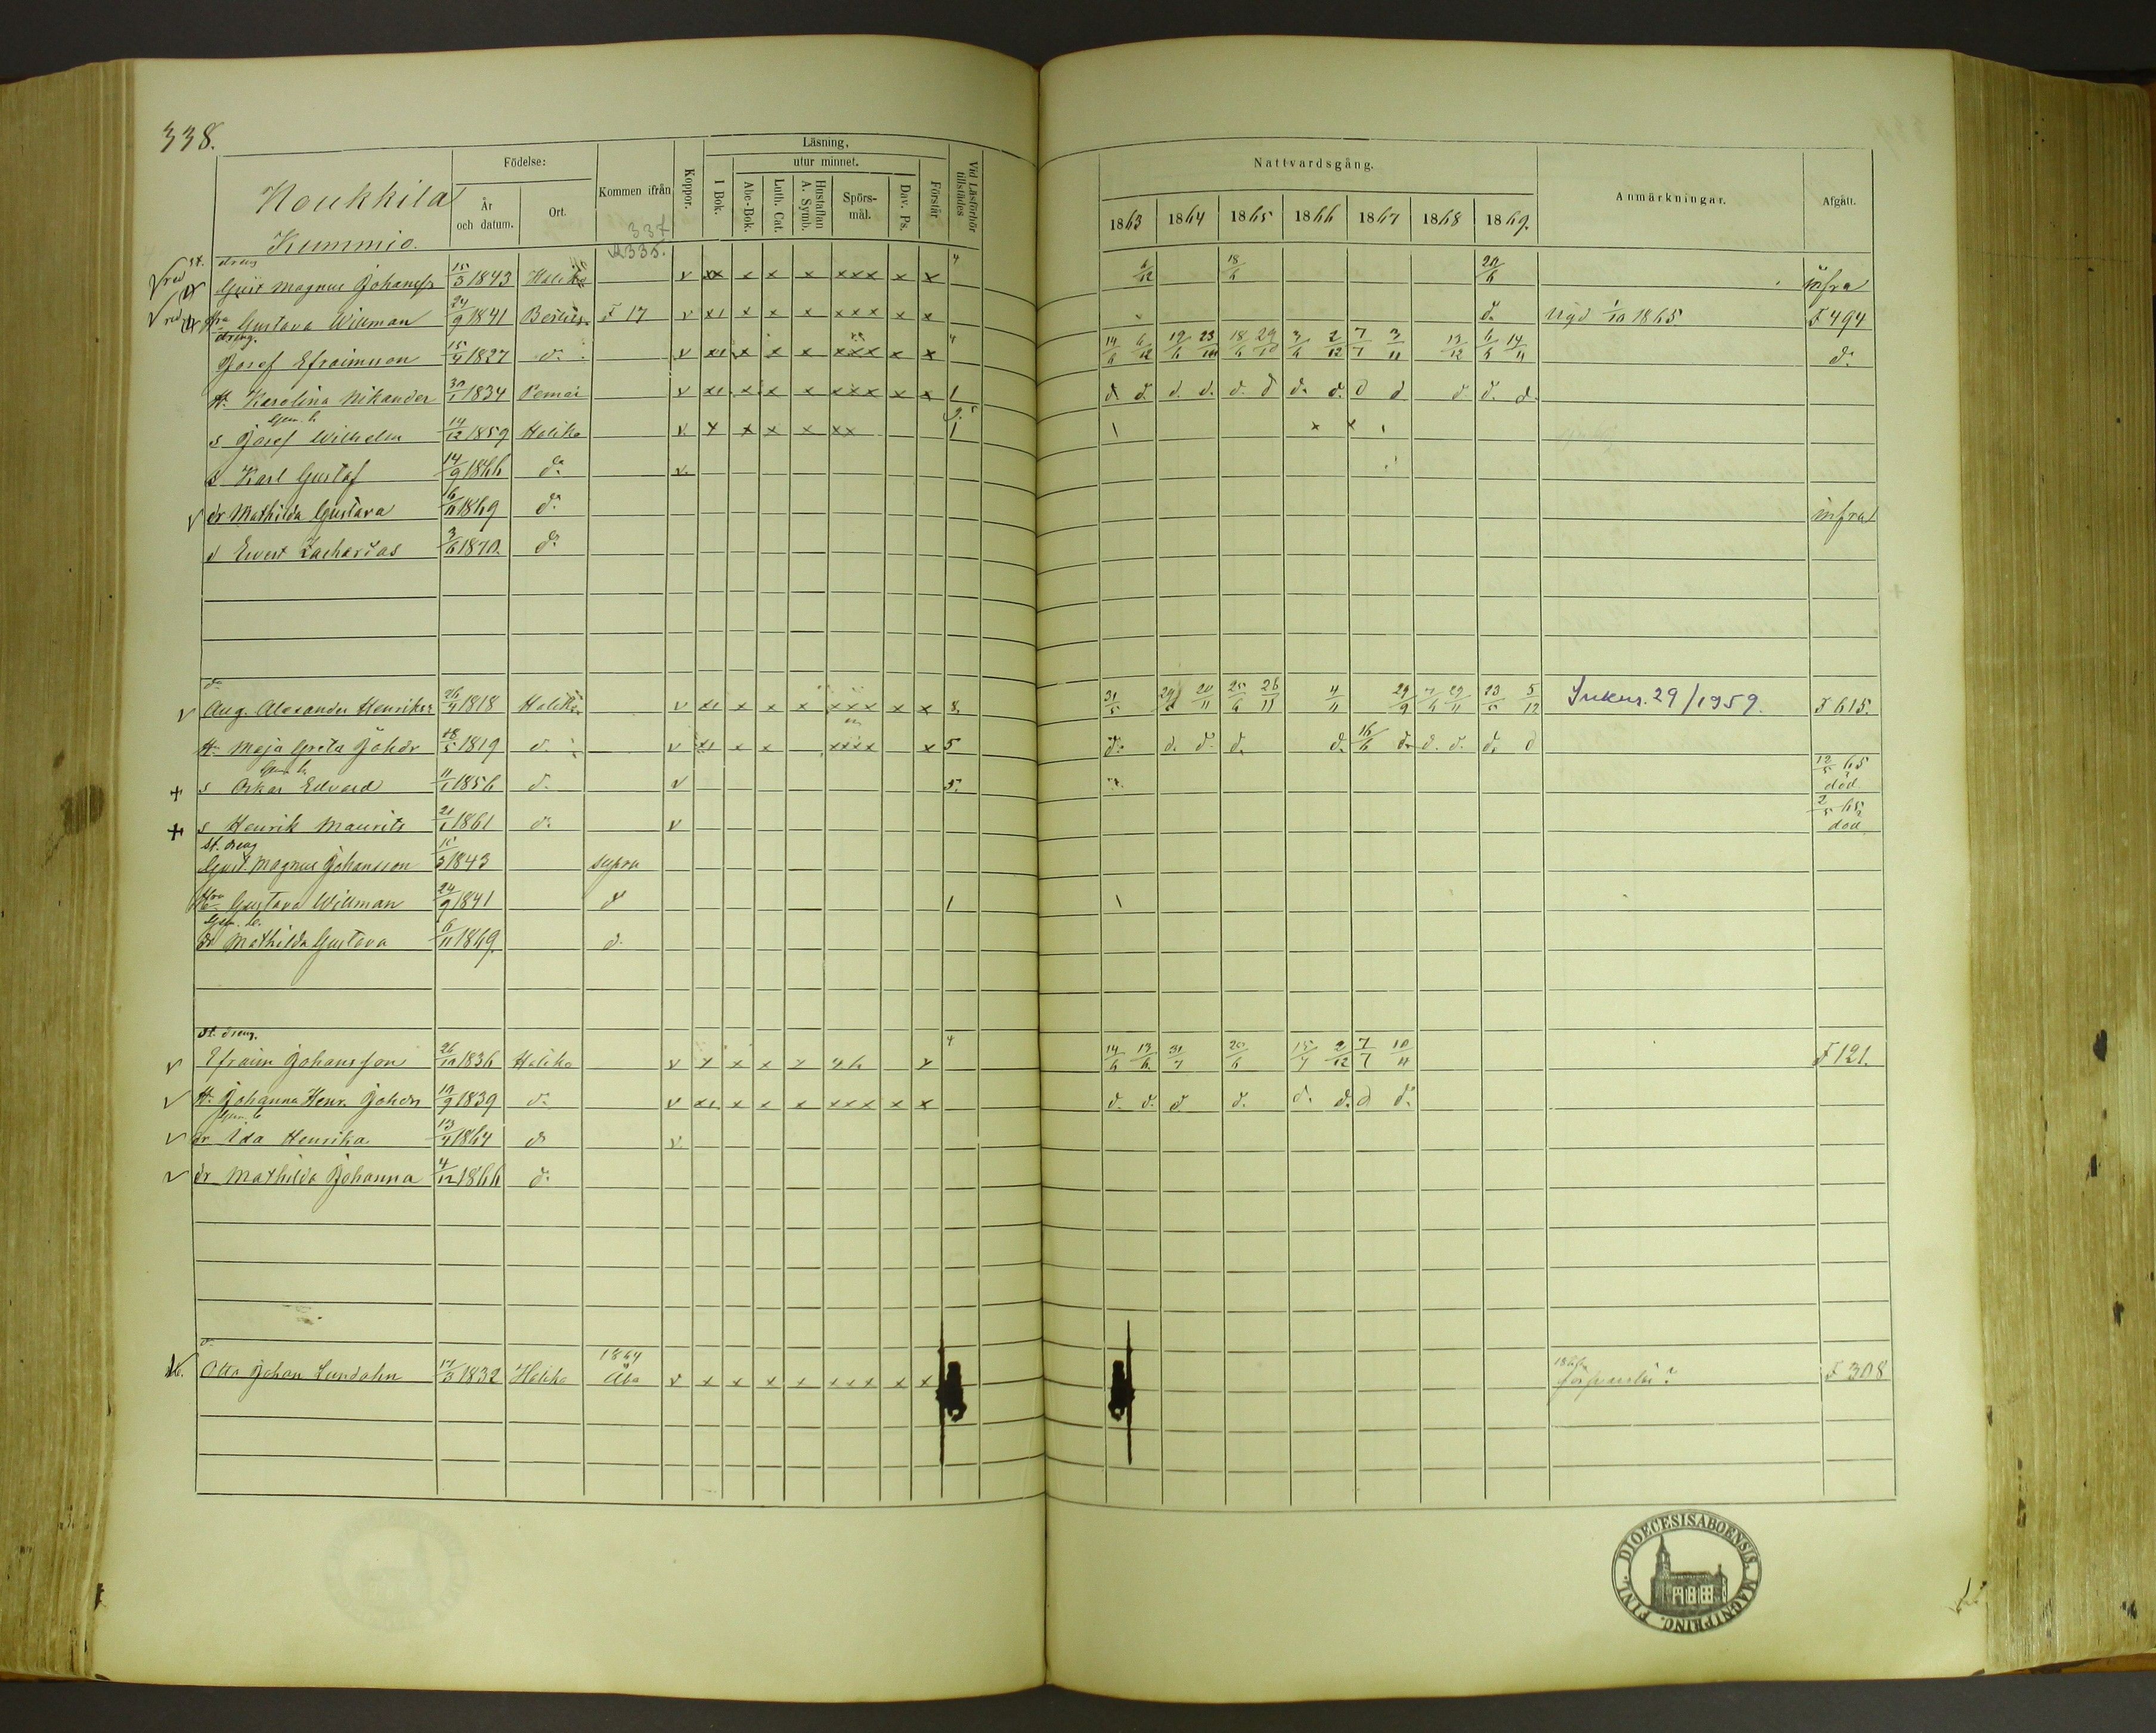 338.
Noukkila
Kummio.
Födelse:
År och datum.
Ort.
Kommen ifrån
337
Koppor.
Läsning,
I Bok.
utur minnet.
Abc-Bok.
Luth. Cat.
Hustaflan A. Symb.
Spörsmål.
Dav. Ps.
Förstår
Vid Läsförhör tillstädes
Nattvardsgång.
1863 1864 1865 1866 1867 1868 1869.
Anmärkningar.
Afgått.
st. dreng
Gust Magnus Johanss 15/3 1843 Haliko v xx x x x xxx x x 4 6/12 18/6 20/6
Hra Gustava Willman 24/9 1841 F 17 v x x x xxx x x d. Vigd 1/10 1865 F 494
dreng.
Josef Efraimsson 15/4 1827 d. v x x x xxx x x 4 14/6 6/12 19/6 18/6 2/12 7/7 3/11 13/12 6/6 14/11 d.
H. Karolina Nikander 1834 Pemar v x x x xxx x x 1 d. d. d. d. d. d. d. d. d d d. d. d.
s Josef Wilhelm 14/12 1859 Haliko v x x x x xx 1 1 x x
s Karl Gustaf 14/9 1866 d. v.
v dr Mathilda Gustava 6/11 1869 d. infra
s Evert Zacharias 3/6 1870. d.
d.
v Aug. Alexander Henriks 26/4 1818 Haliko v x x x xxx x x 8. 31/5 20/11 25/6 26/11 4/11 29/9 29/11 23/5 5/12 Sukus. 29/1959. F 615.
H. Maja Greta Johdr 18/5 1819 d. v x x xxxx x 5 d. d. d. d. d. 16/6 d. d. d. d. d
+ s Oskar Edvard 11/1 1856 d. v 5. 12/5 65 död
+ s Henrik Maurits 21/1 1861 d. v 2/5 65 död
st. dreng
Gust. Magnus Johansson 15/3 1843 supra
Hra Gustava Willman 24/9 1841 d 1 1
dr Mathilda Gustava 6/11 1869. d.
st. dreng.
v Efraim Johansson 26/10 1836 Haliko v x x x x x 4 14/6 13/6 31/7 20/6 15/7 2/12 7/7 10/11 F 121.
v H. Johanna Henr. Johdr 19/9 1839 d. v x x x xxx x x d. d. d d. d. d. d d.
v dr Ida Henrika 13/4 1864 d v.
v dr Mathilda Johanna 4/12 1866 d.
d.
Otto Johan Lundahn 1832 Haliko 1864 Åbo v x x x x xxx x x F 308
DIOECESIS ABOENSIS. MAGNI PRINC. FINL.